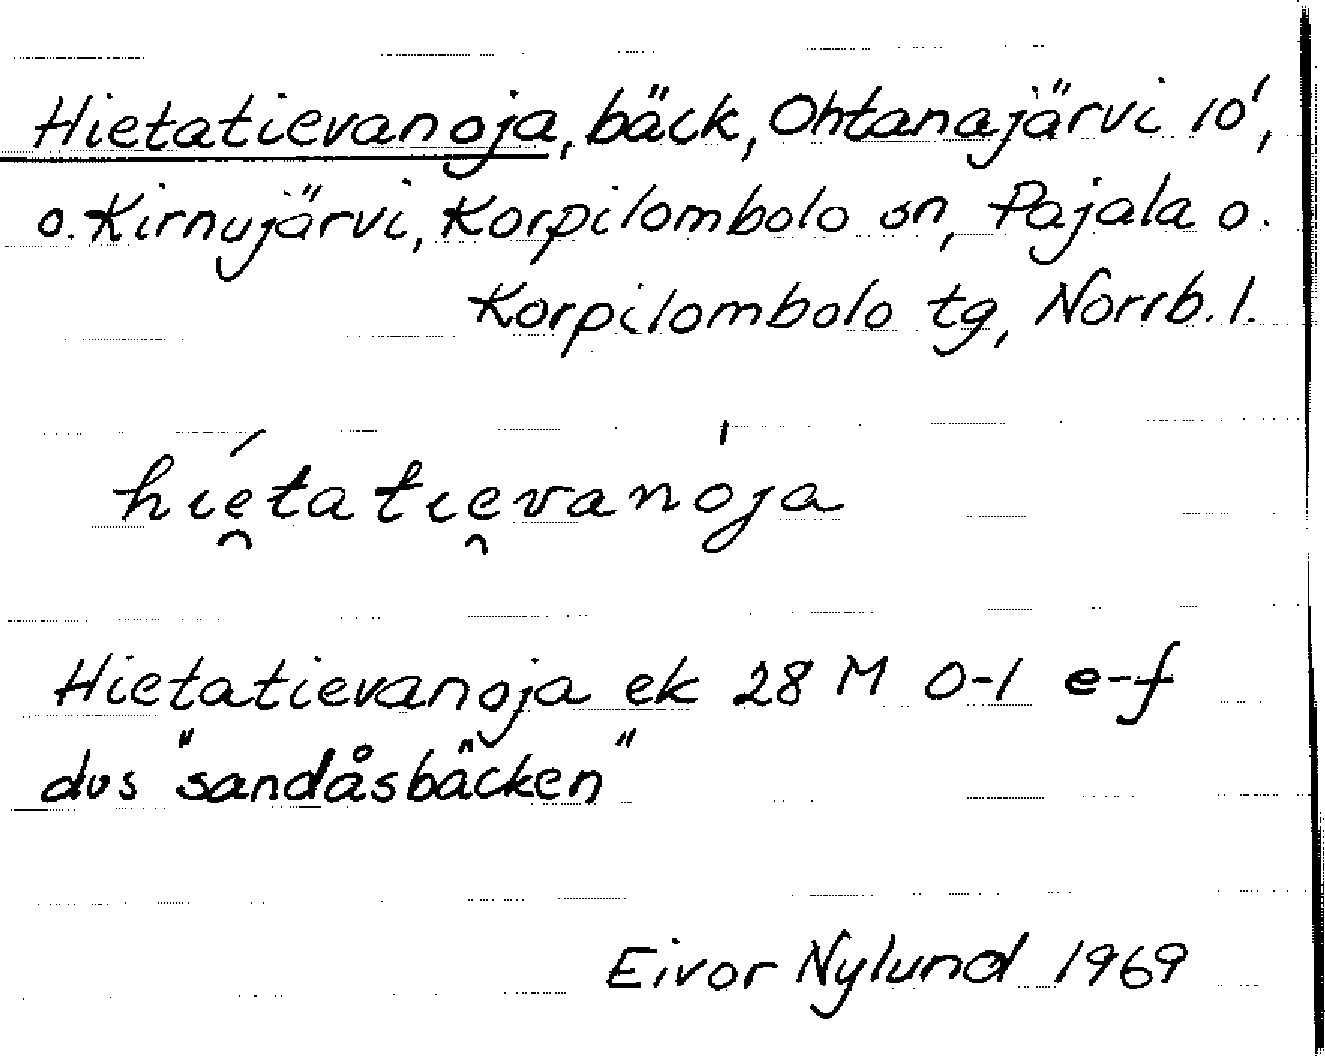 Hietatievanoja, bäck, Ohtanajärvi 10',
o. Kirnujärvi, Korpilombolo sn, Pajala o.
Korpilombolo tg, Norrb. l.
híe̯tatie̯vanòja
Hietatievanoja ek 28 M 0-1 e-f
dvs "sandåsbäcken"
Eivor Nylund 1969